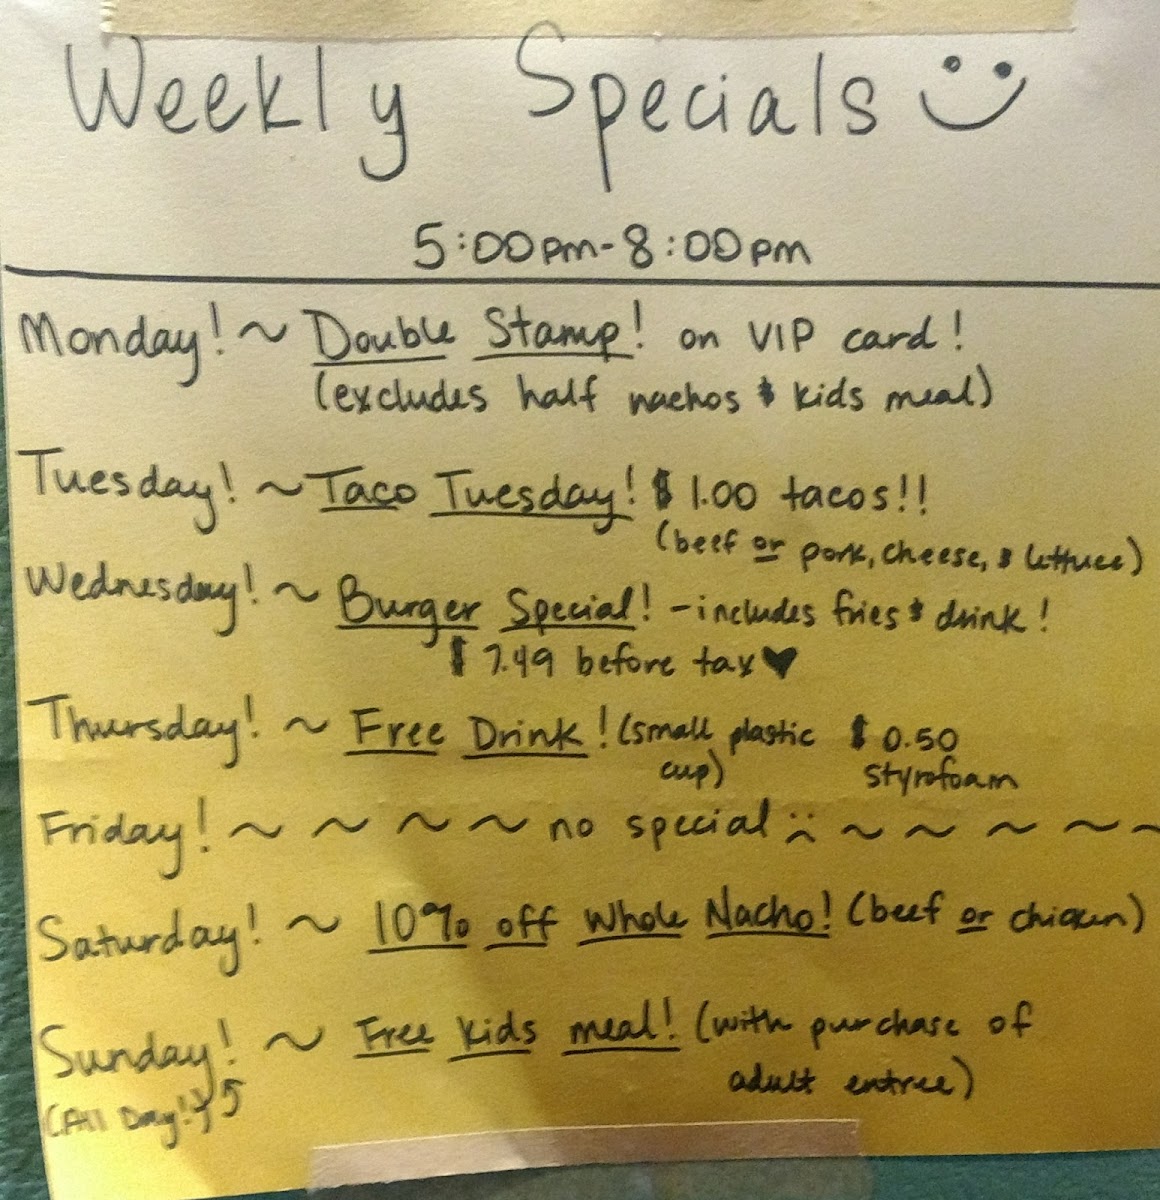 Weekly Specials
5:00pm-8:00pm
Monday! ~ Double Stamp! on VIP card!
(excludes half nachos & kids meal)
Tuesday! ~ Taco Tuesday! $1.00 tacos!!
(beef or pork, cheese, & lettuce)
Wednesday! ~ Burger Special! - includes fries & drink!
$7.49 before tax ♥
Thursday! ~ Free Drink! (small plastic $0.50
cup) styrofoam
Friday! ~ ~ ~ ~ no special :( ~ ~ ~ ~ ~
Saturday! ~ 10% off Whole Nacho! (beef or chicken)
Sunday! ~ Free kids meal! (with purchase of
(All Day!) 5 adult entree)